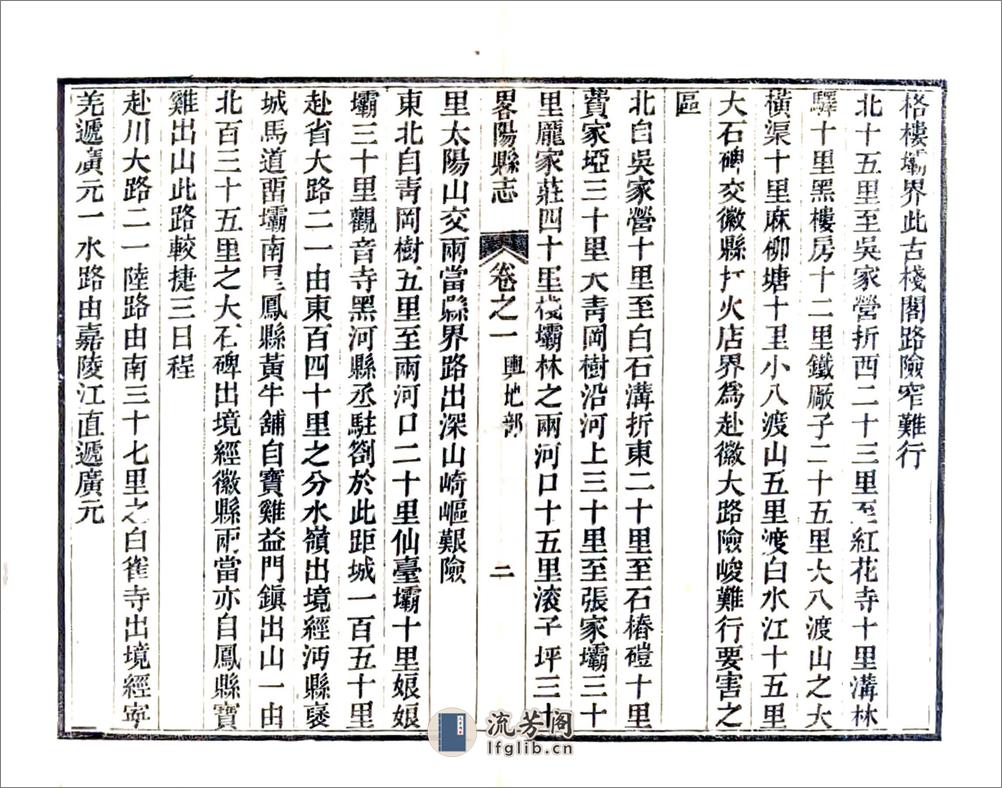 格樓壩界此古棧閣路險窄難行
北十五里至吳家營折西二十三里至紅花寺十里溝林
驛十里黑樓房十二里鐵厰子二十五里大八渡山之大
橫渠十里麻柳塘十里小八渡山五里渡白水江十五里
大石碑交徽縣打火店界爲赴徽大路險峻難行要害之
區
北自吳家營十里至白石溝折東二十里至石樁磑十里
費家埡三十里大青岡樹沿河上三十里至張家壩三十
里龐家莊四十里棧壩林之兩河口十五里滚子坪三十
里太陽山交兩當縣界路出深山崎嶇艱險
畧陽縣志
卷之一
輿地部
二
東北自青岡樹五里至兩河口二十里仙臺壩十里娘娘
壩三十里觀音寺黑河縣丞駐劄於此距城一百五十里
赴省大路二一由東百四十里之分水嶺出境經沔縣襃
城馬道畱壩南星鳳縣黃牛舖自寶雞益門鎮出山一由
北百三十五里之大石碑出境經徽縣兩當亦自鳳縣寶
雞出山此路較捷三日程
赴川大路二一陸路由南三十七里之白雀寺出境經寧
羌遞廣元一水路由嘉陵江直遞廣元
流芳阁
lfglib.cn